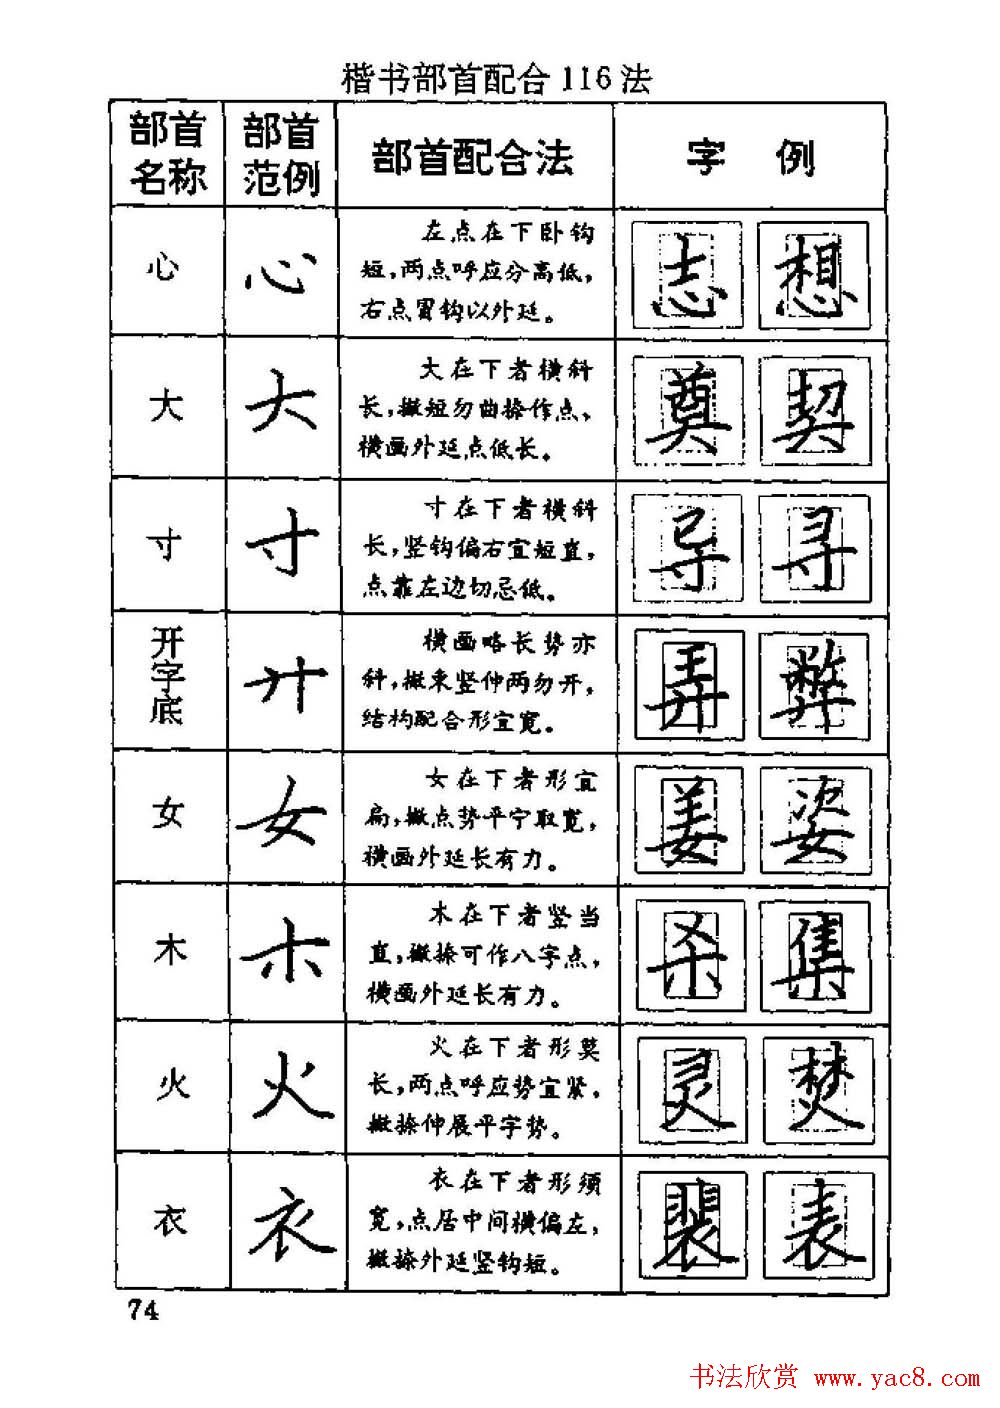 楷书部首配合116法
部首名称 部首范例 部首配合法 字 例
心 心 左点在下卧钩
短,两点呼应分高低,
右点冒钩以外延。
志 想
大 大 大在下者横斜
长,撇短勿曲捺作点、
横画外延点低长。
奠 契
寸 寸 寸在下者横斜
长,竖钩偏右宜短直,
点靠左边切忌低。
导 寻
开字底 廾 横画略长势亦
斜,撇来竖伸两勿开,
结构配合形宜宽。
弄 弊
女 女 女在下者形宜
扁,撇点势平宁取宽,
横画外延长有力。
姜 姿
木 木 木在下者竖当
直,撇捺可作八字点,
横画外延长有力。
杀 集
火 火 火在下者形莫
长,两点呼应势宜紧,
撇捺伸展平字势。
灵 焚
衣 衣 衣在下者形须
宽,点居中间横偏左,
撇捺外延竖钩短。
裴 表
74
书法欣赏 www.yac8.com